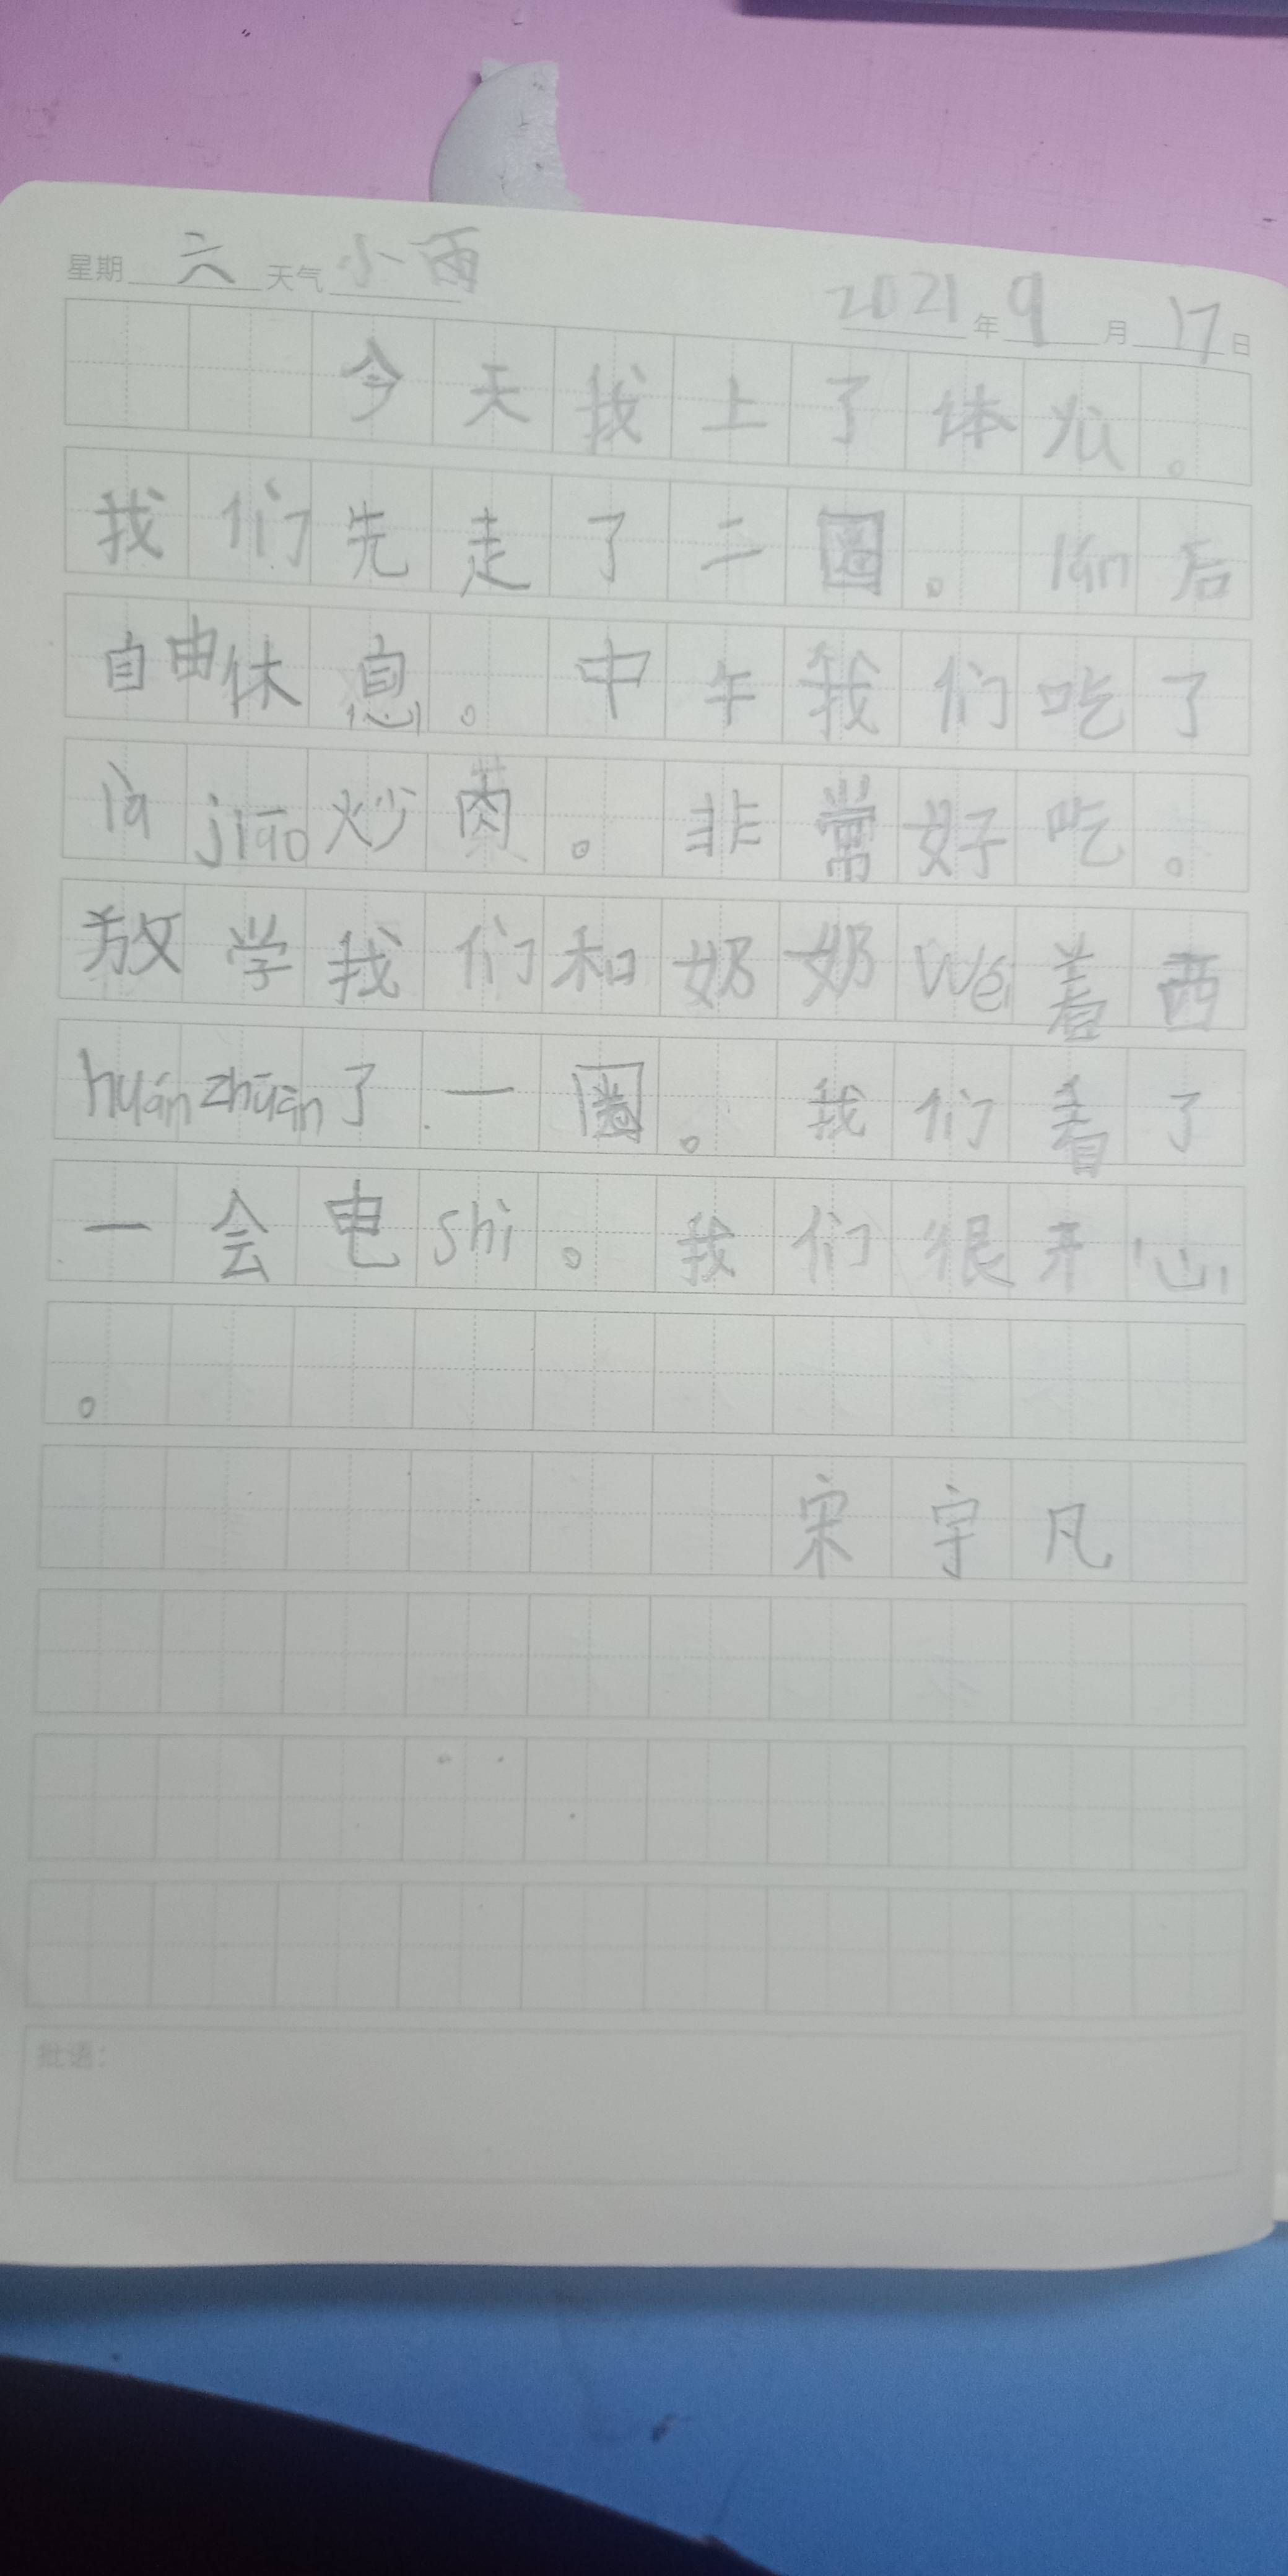 星期 六 天气 小雨 2021 年 9 月 17 日
今天找上了体
找们先走了二圈。rán后
自由休息。中午我们吃了
là jiāo炒肉。非常好吃。
放学找们和奶奶wéi着西
huán zhuān了一圈。我们看了
一会电shì。我们很开心
。
宋宇凡
批语: